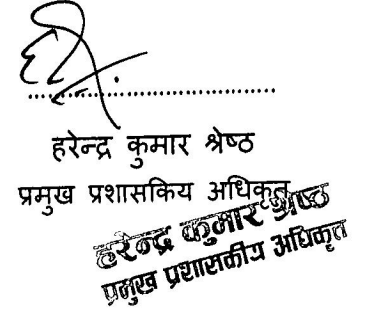 ..........................................
हरेन्द्र कुमार श्रेष्ठ
प्रमुख प्रशासकिय अधिकृत
हरेन्द्र कुमार श्रेष्ठ
प्रमुख प्रशासकीय अधिकृत